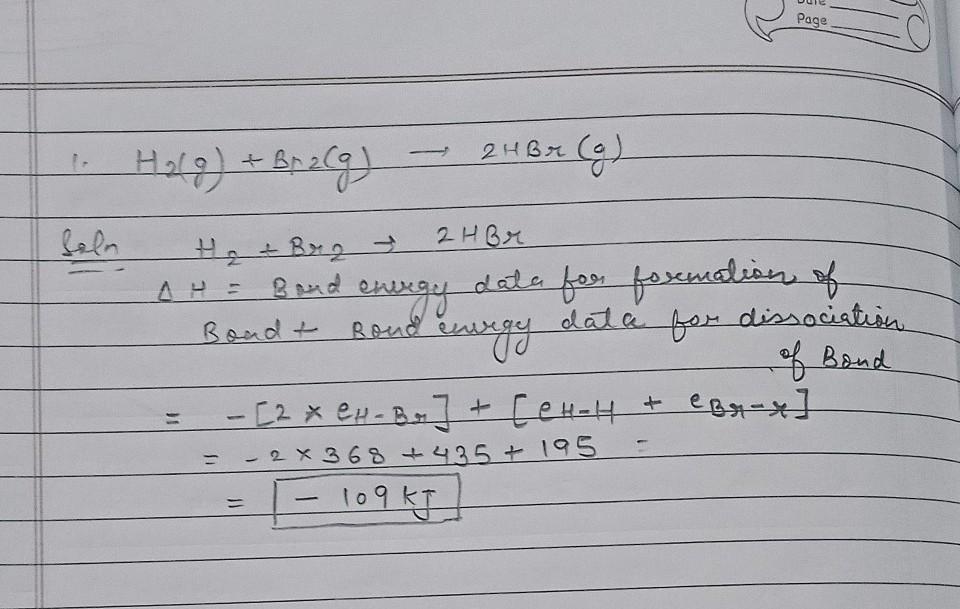 Page
1. H2(g) + Br2(g) → 2HBr(g)
Soln H2 + Br2 → 2HBr
ΔH = Bond energy data for formation of
Bond + Bond energy data for dissociation
of Bond
= -[2 × eH-Br] + [eH-H + eBr-r]
= -2 × 368 + 435 + 195 =
= - 109 kJ